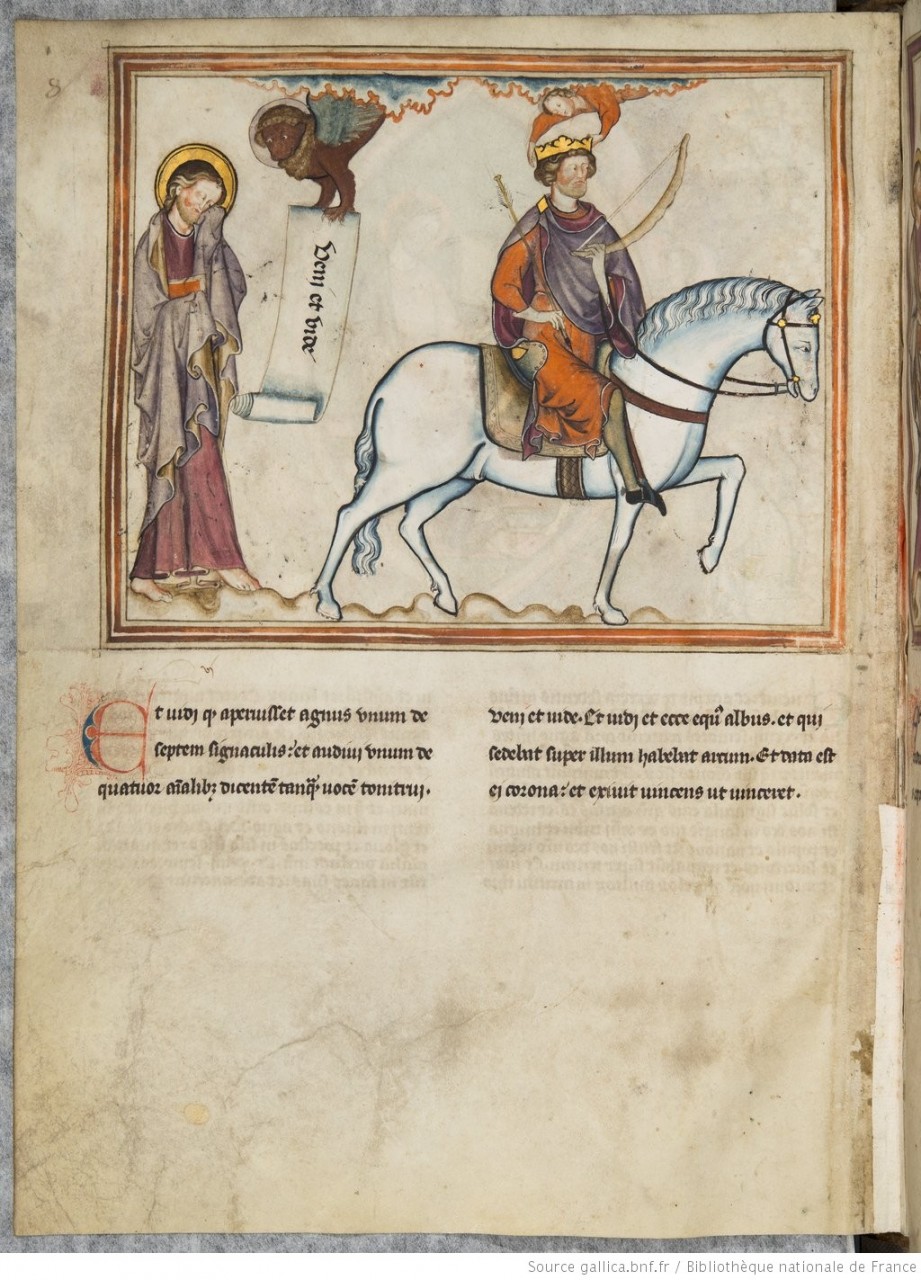 8
Veni et vide
Et uidi qꝫ aperuisset agnus vnum de
septem signaculis: et audiui vnum de
quatuor aĩalibꝫ dicentẽ tanq̃ uocẽ tonitrui.
veni et uide. Et uidi et ecce equꝰ albus. et qui
sedebat super illum habebat arcum. Et data est
ei corona: et exiuit uincens ut uinceret.
Source gallica.bnf.fr / Bibliothèque nationale de France